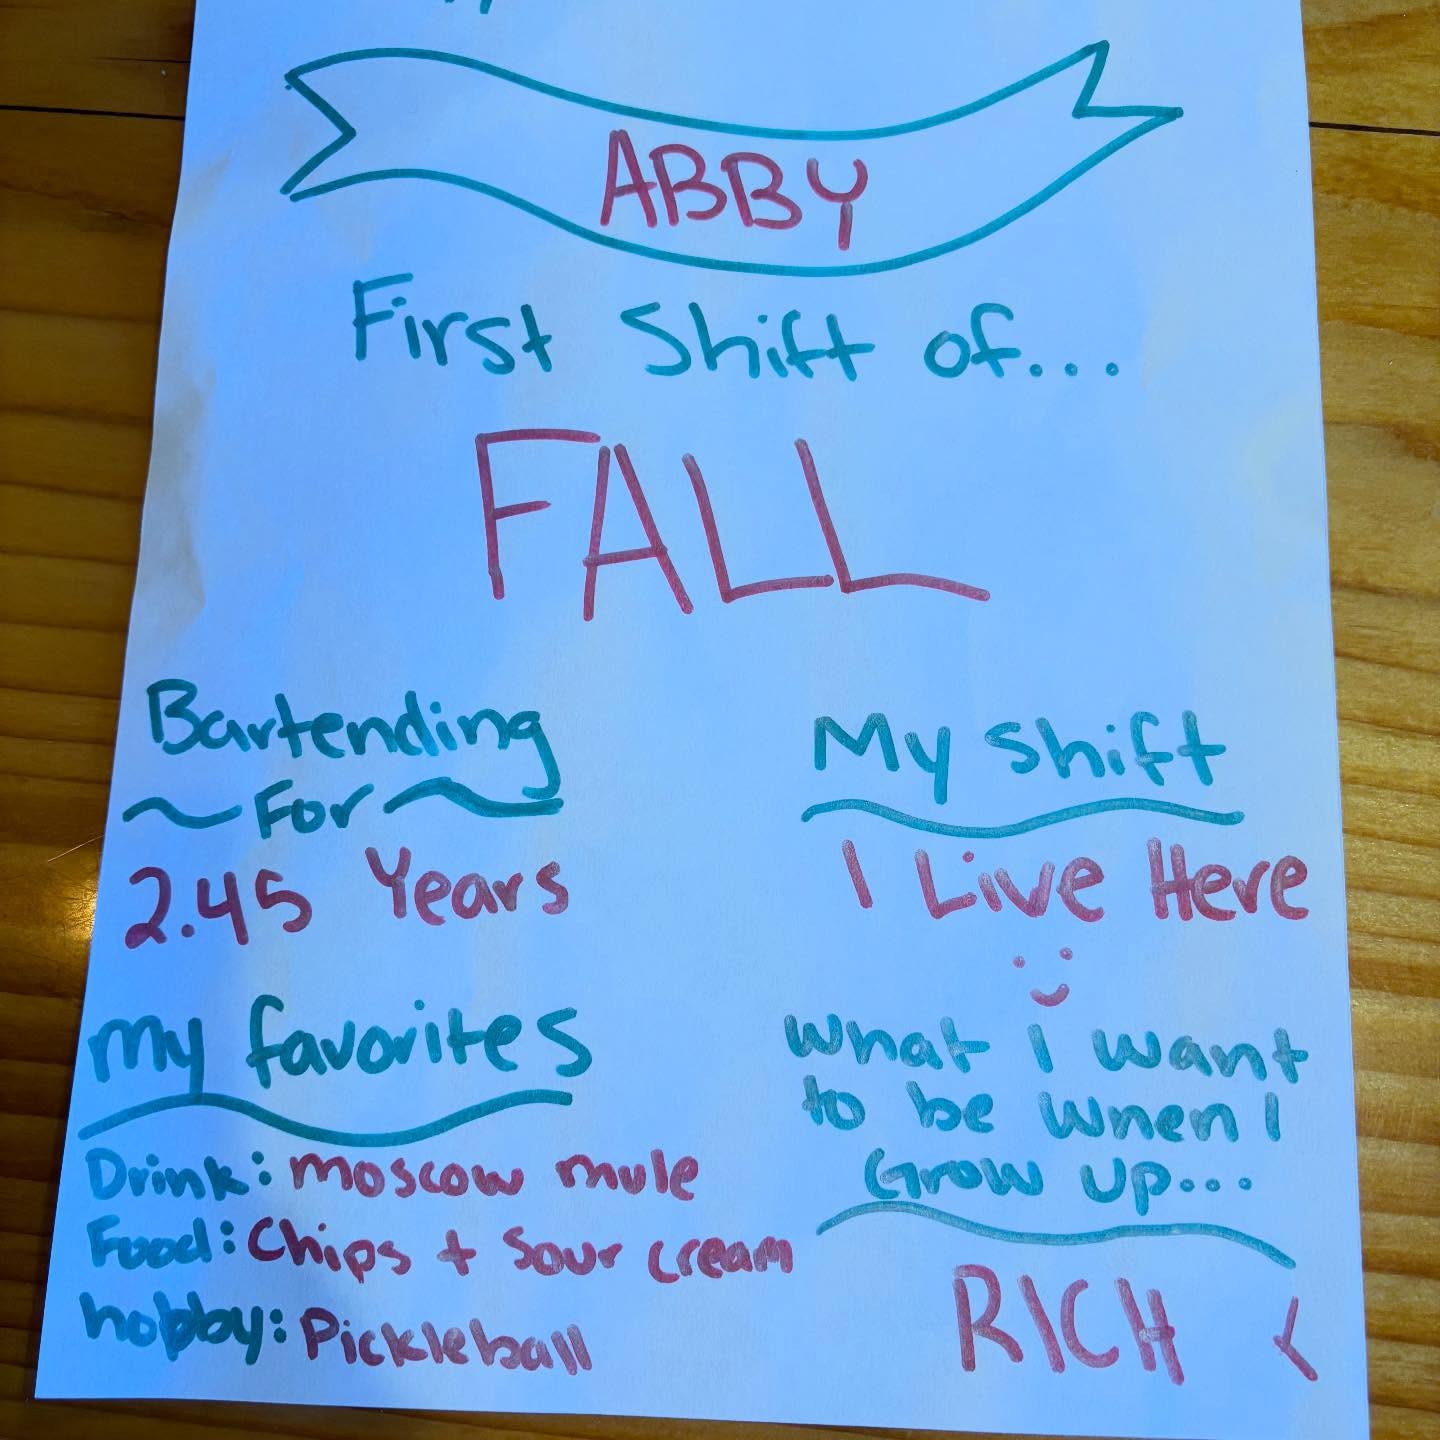 ABBY
First Shift of...
FALL
Bartending
~ For ~
2.45 Years
My Shift
I Live Here
:)
my favorites
Drink: moscow mule
Food: Chips + Sour cream
hobby: Pickleball
What I want
to be when I
Grow up...
RICH